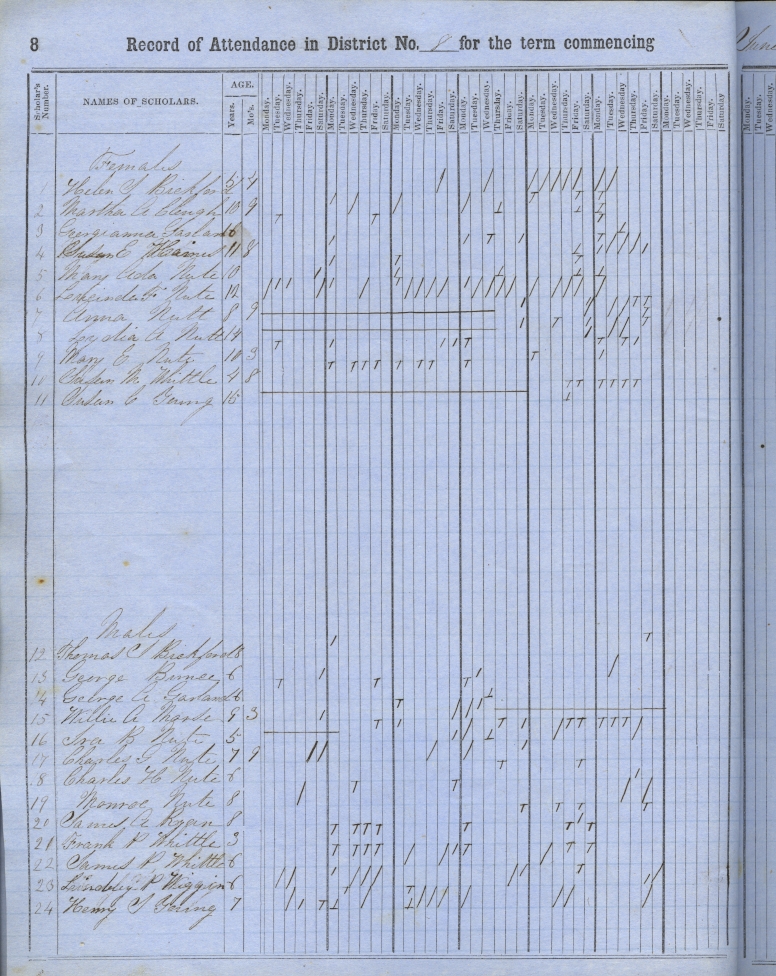 8 Record of Attendance in District No. 8 for the term commencing
Scholar's Number. NAMES OF SCHOLARS. AGE. Years. Mo's. Monday. Tuesday. Wednesday. Thursday. Friday. Saturday. Monday. Tuesday. Wednesday. Thursday. Friday. Saturday. Monday. Tuesday. Wednesday. Thursday. Friday. Saturday. Monday. Tuesday. Wednesday. Thursday. Friday. Saturday. Monday. Tuesday. Wednesday. Thursday. Friday. Saturday. Monday. Tuesday. Wednesday. Thursday. Friday. Saturday. Monday. Tuesday. Wednesday. Thursday. Friday. Saturday
Females
1 Helen S Bickford 4
2 Martha A Clough 10 9
3 Georgeanna Garland 16
4 Susan E Haines 11 8
5 Mary Ada Nute 10
6 Nute 12
7 Anna Nutt 8 9
8 Lydia A Nute 14
9 Mary E Nute 10 3
10 Susan M Whittle 4 8
11 Susan C Young 15
Males
12 Thomas S Bickford 8
13 George 6
14 George A Garland 6
15 Willie A 9 3
16 Ira B Nute 5
17 Charles F Nute 7 9
18 Charles H Nute 6
19 Monroe Nute 8
20 James A 8
21 Frank P Whittle 3
22 James P Whittle 6
23 Lindley P Wiggin 6
24 Henry S Young 7
Monday. Tuesday. Wednesday.